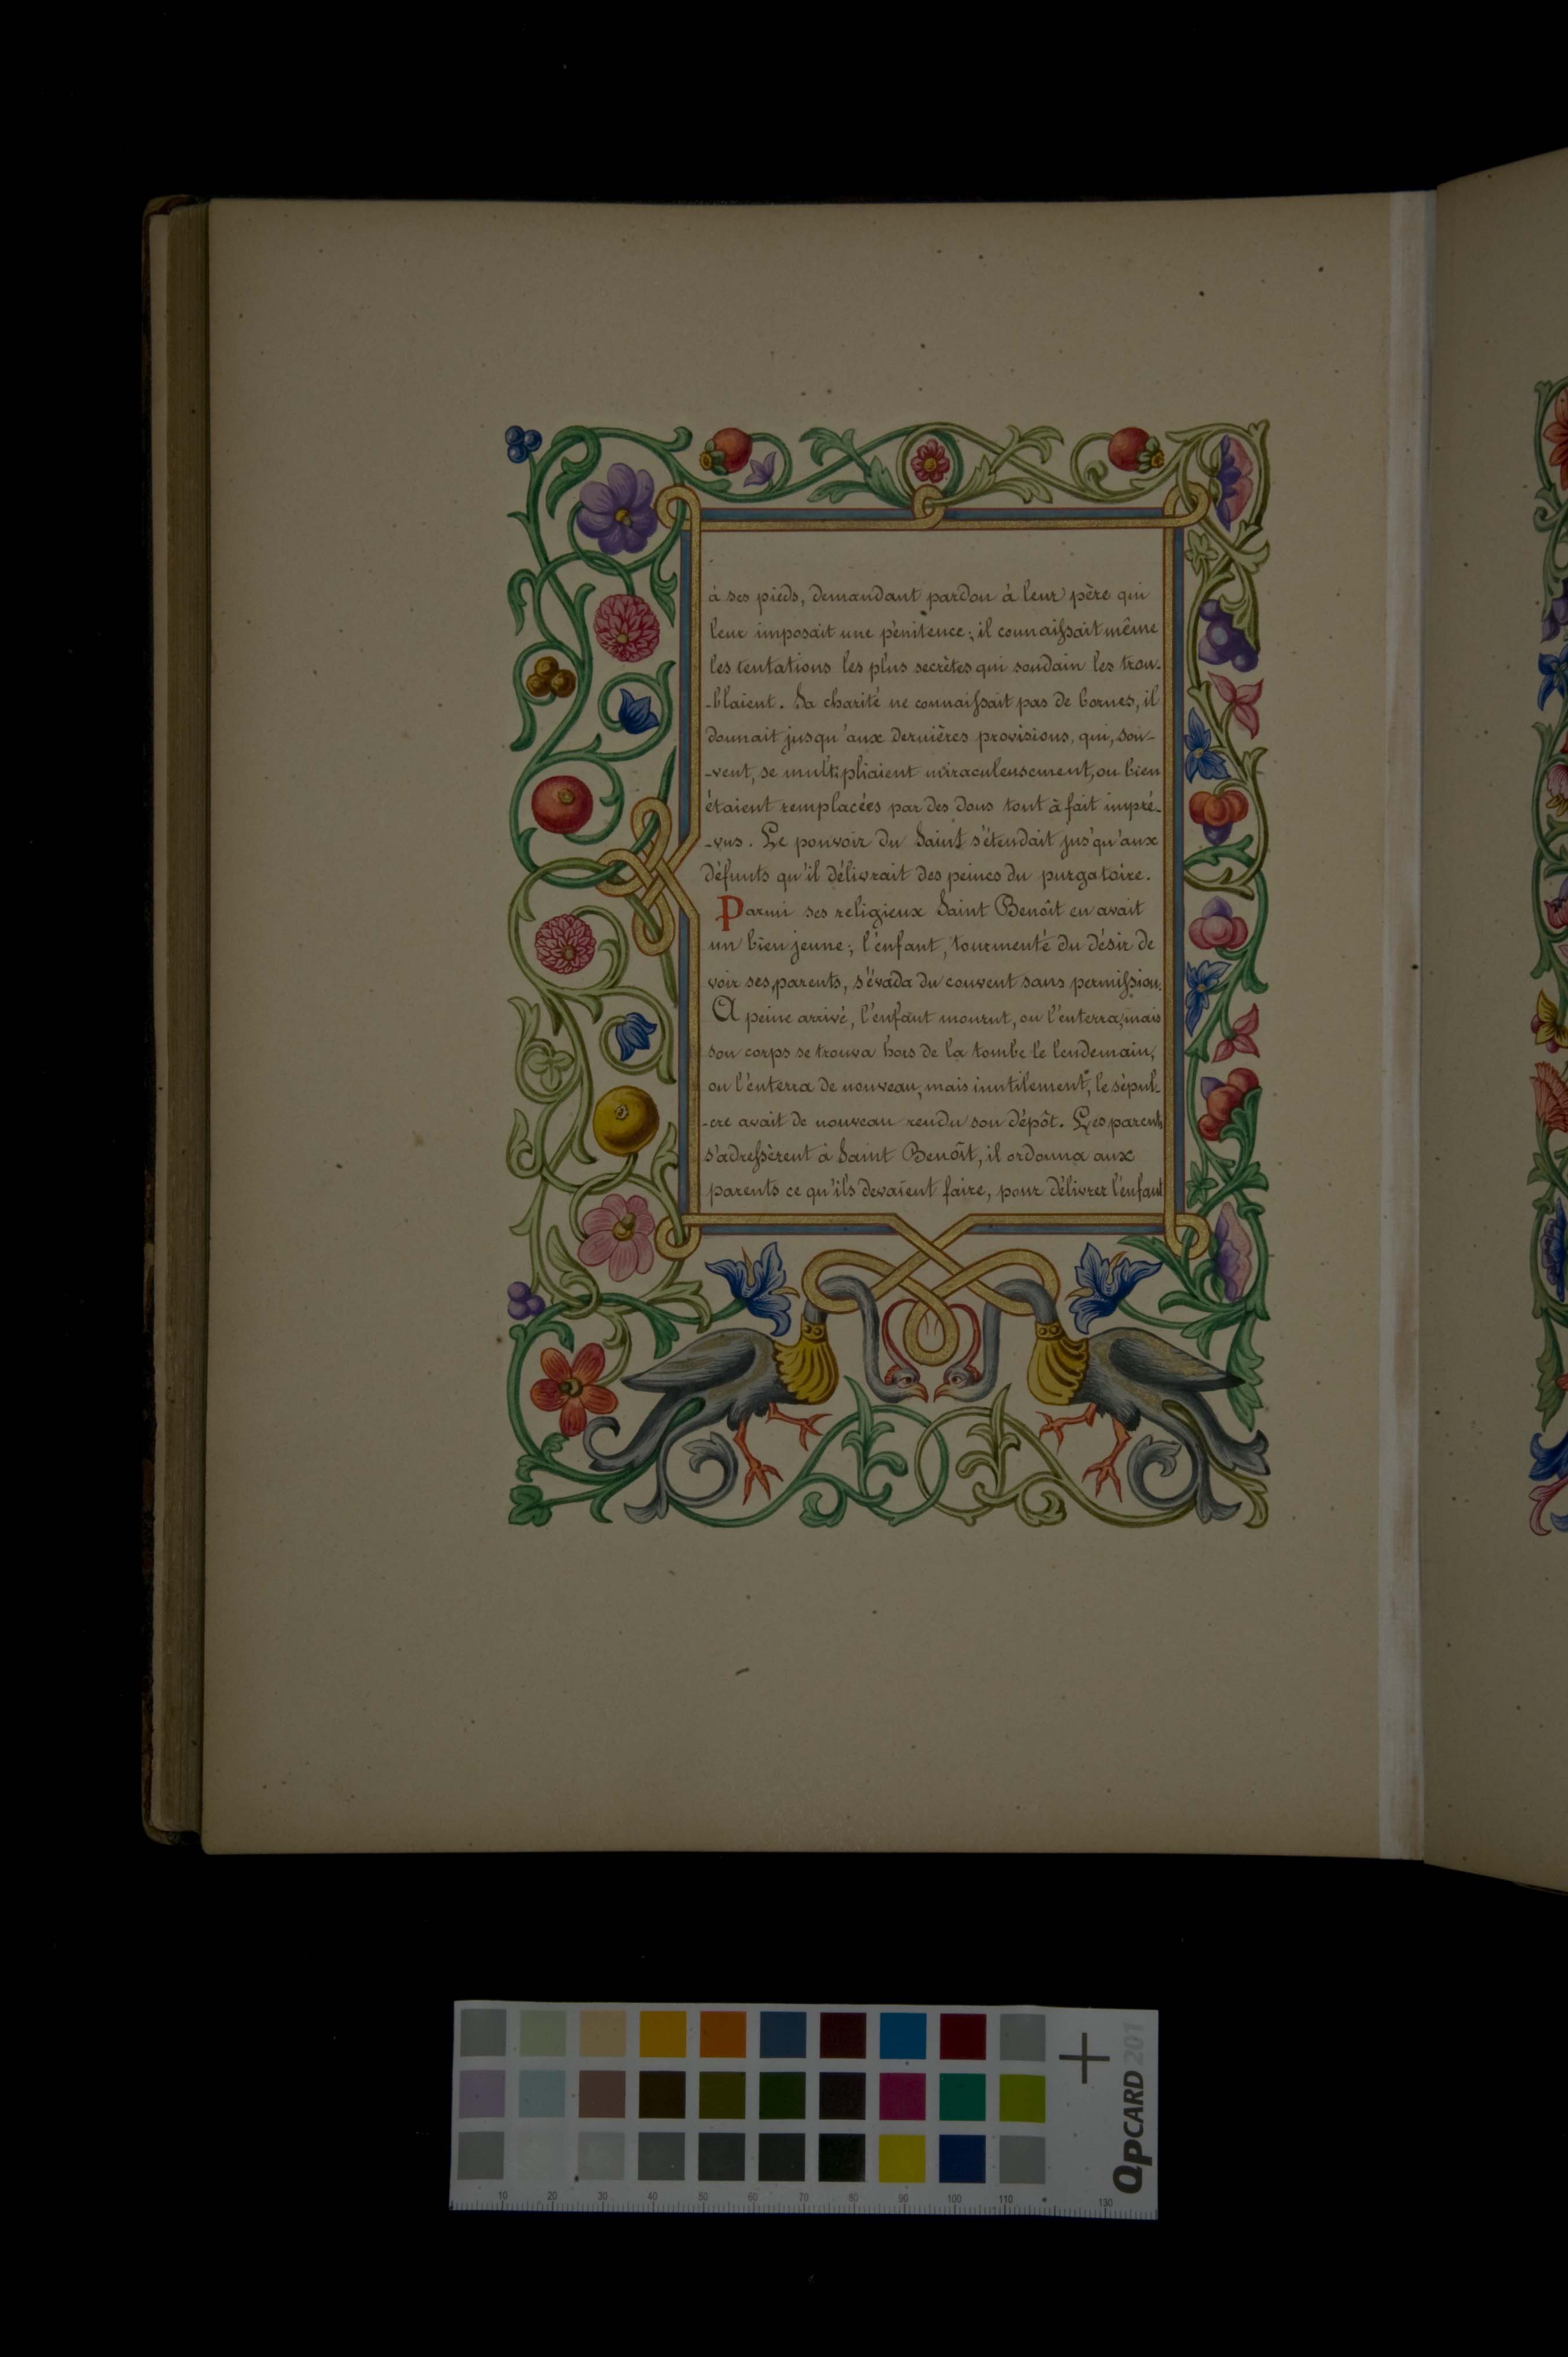 à ses pieds, demandant pardon à leur père qui
leur imposait une pénitence; il connaissait même
les tentations les plus secrètes qui soudain les trou-
-blaient. Sa charité ne connaissait pas de bornes, il
donnait jusqu'aux dernières provisions, qui, sou-
-vent, se multipliaient miraculeusement, ou bien
étaient remplacées par des dons tout à fait impré-
-vus. Le pouvoir du Saint s'étendait jusqu'aux
défunts qu'il délivrait des peines du purgatoire.
Parmi ses religieux Saint Benoît en avait
un bien jeune; l'enfant, tourmenté du désir de
voir ses parents, s'évada du couvent sans permission.
A peine arrivé, l'enfant mourut, on l'enterra, mais
son corps se trouva hors de la tombe le lendemain,
on l'enterra de nouveau, mais inutilement, le sépul-
-cre avait de nouveau rendu son dépôt. Les parents
s'adressèrent à Saint Benoît, il ordonna aux
parents ce qu'ils devaient faire, pour délivrer l'enfant
QPCARD 201
10 20 30 40 50 60 70 80 90 100 110 130